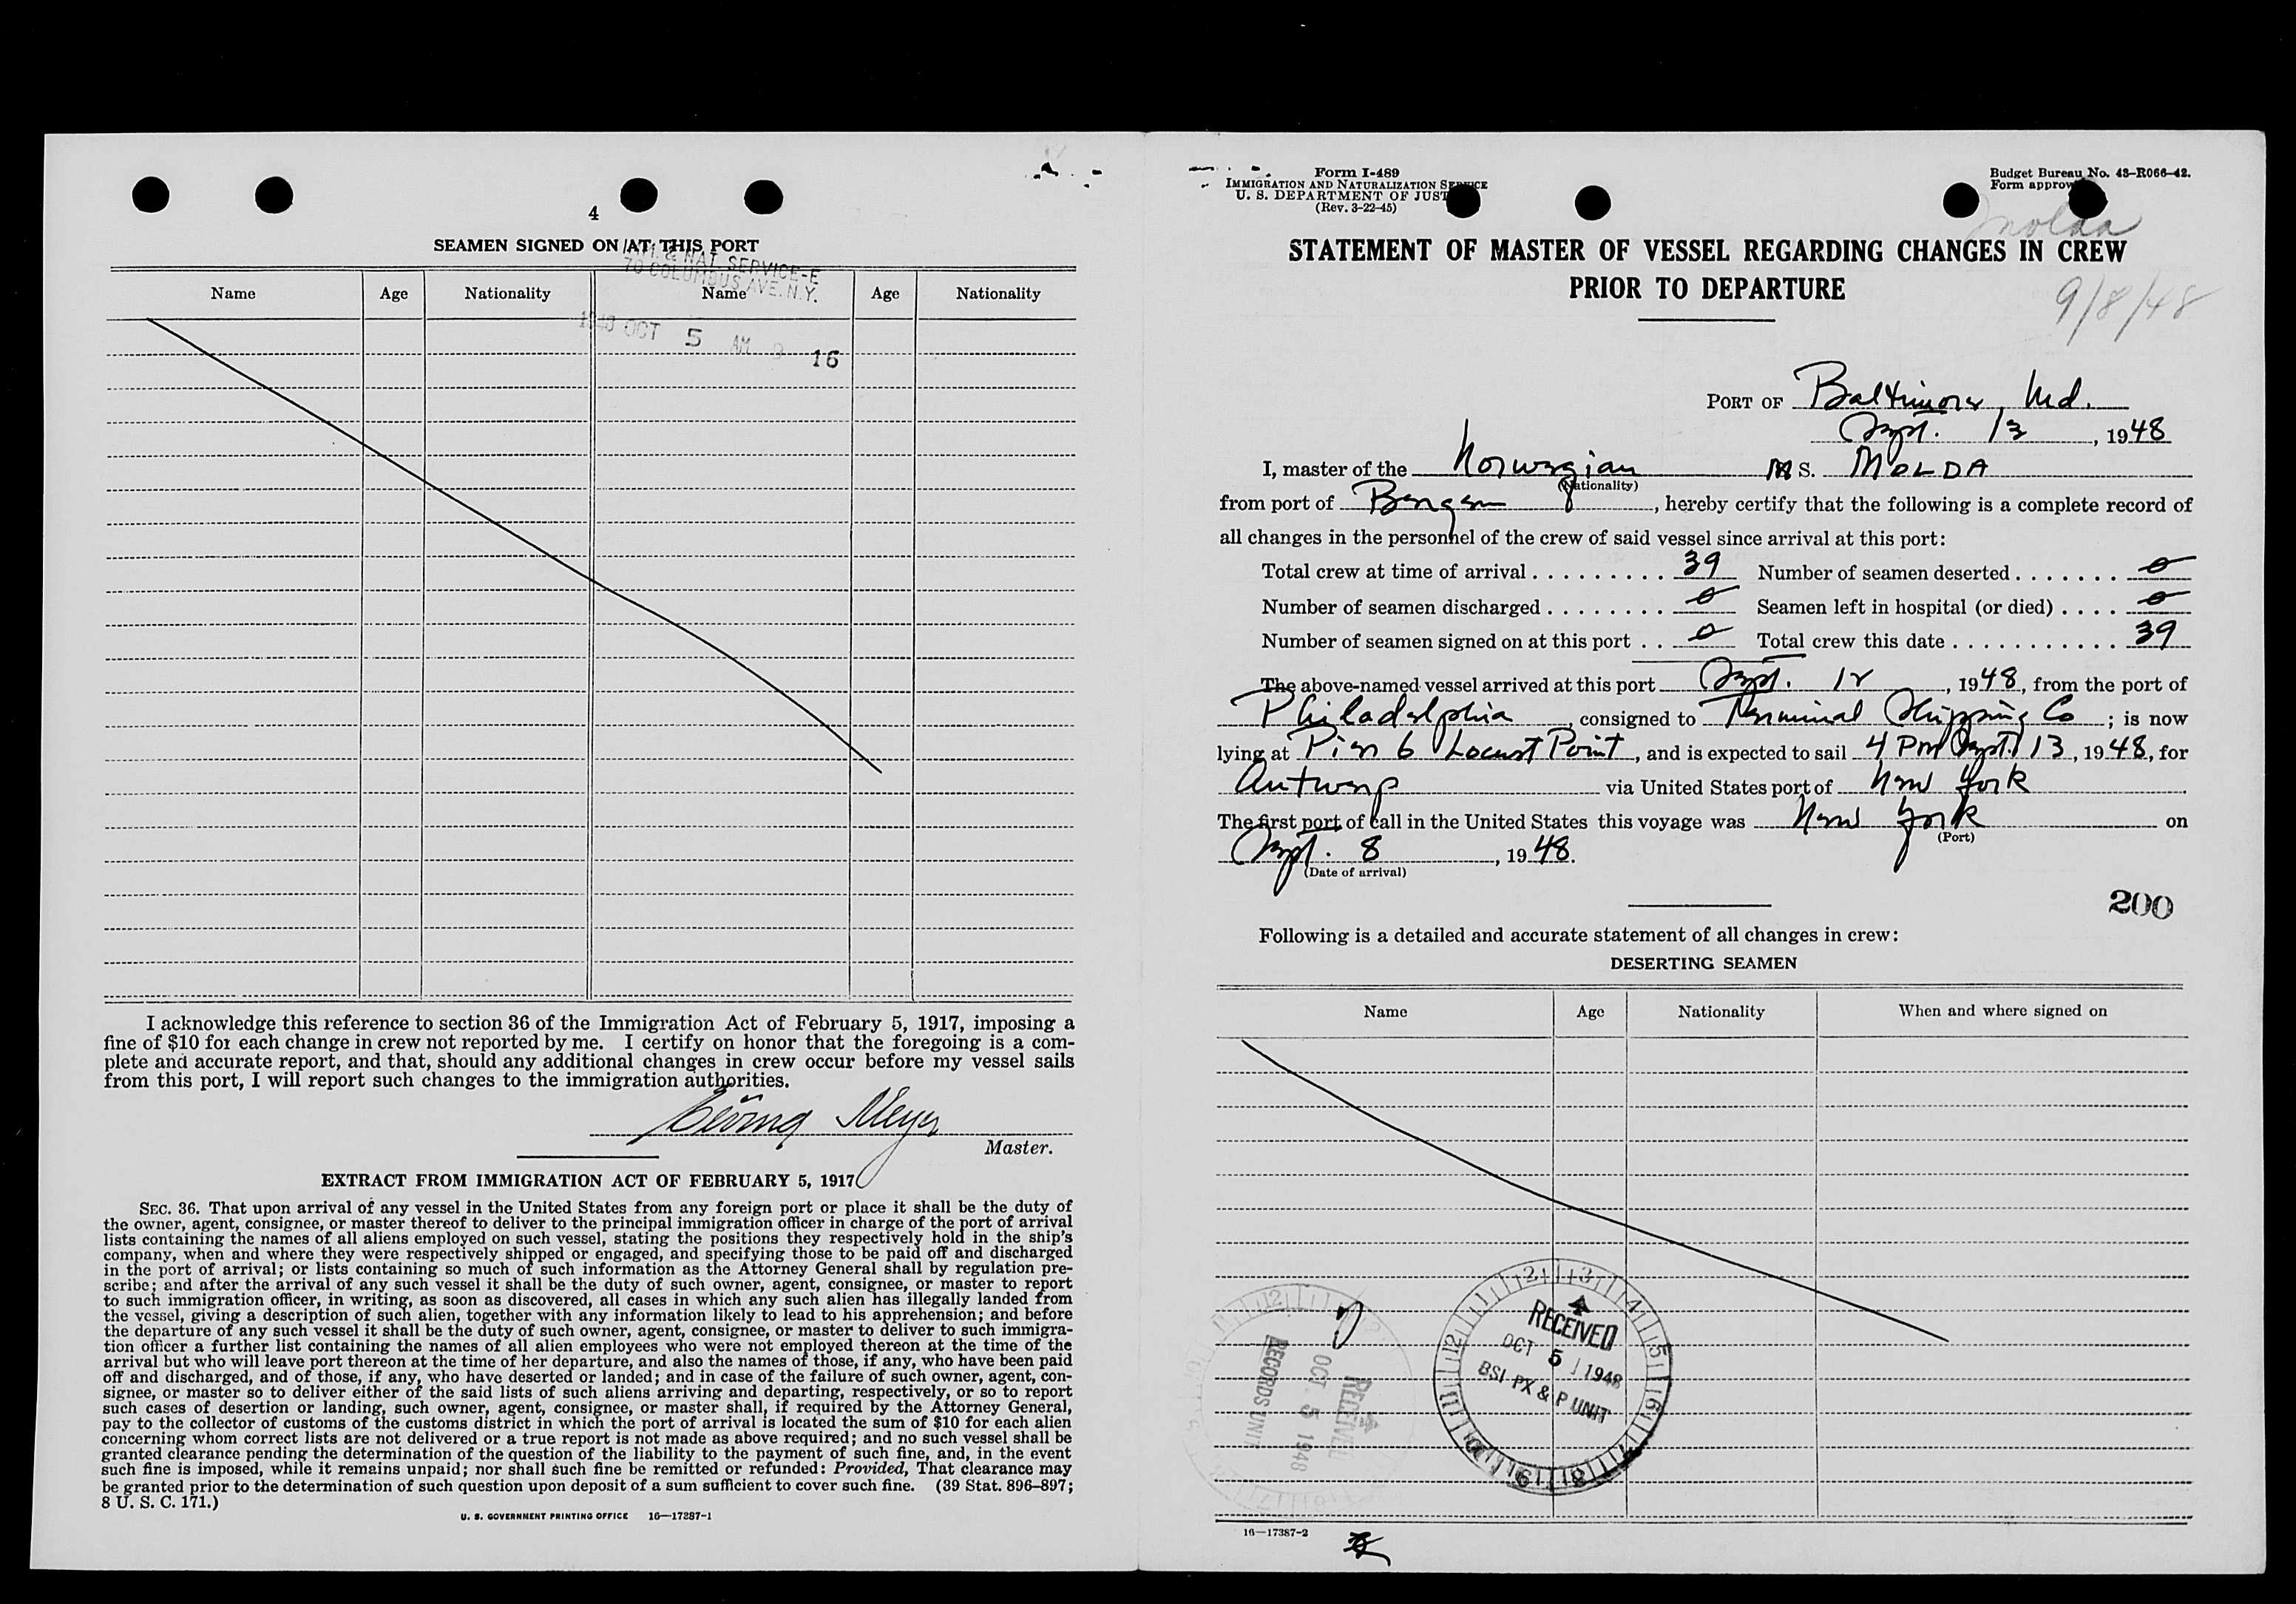 4
SEAMEN SIGNED ON AT THIS PORT
& NAT. SERVICE-E
70 COLUMBUS AVE. N.Y.
Name Age Nationality Name Age Nationality
OCT 5 AM 9 16
I acknowledge this reference to section 36 of the Immigration Act of February 5, 1917, imposing a
fine of $10 for each change in crew not reported by me. I certify on honor that the foregoing is a com-
plete and accurate report, and that, should any additional changes in crew occur before my vessel sails
from this port, I will report such changes to the immigration authorities.
Meyer
Master.
EXTRACT FROM IMMIGRATION ACT OF FEBRUARY 5, 1917
SEC. 36. That upon arrival of any vessel in the United States from any foreign port or place it shall be the duty of
the owner, agent, consignee, or master thereof to deliver to the principal immigration officer in charge of the port of arrival
lists containing the names of all aliens employed on such vessel, stating the positions they respectively hold in the ship's
company, when and where they were respectively shipped or engaged, and specifying those to be paid off and discharged
in the port of arrival; or lists containing so much of such information as the Attorney General shall by regulation pre-
scribe; and after the arrival of any such vessel it shall be the duty of such owner, agent, consignee, or master to report
to such immigration officer, in writing, as soon as discovered, all cases in which any such alien has illegally landed from
the vessel, giving a description of such alien, together with any information likely to lead to his apprehension; and before
the departure of any such vessel it shall be the duty of such owner, agent, consignee, or master to deliver to such immigra-
tion officer a further list containing the names of all alien employees who were not employed thereon at the time of the
arrival but who will leave port thereon at the time of her departure, and also the names of those, if any, who have been paid
off and discharged, and of those, if any, who have deserted or landed; and in case of the failure of such owner, agent, con-
signee, or master so to deliver either of the said lists of such aliens arriving and departing, respectively, or so to report
such cases of desertion or landing, such owner, agent, consignee, or master shall, if required by the Attorney General,
pay to the collector of customs of the customs district in which the port of arrival is located the sum of $10 for each alien
concerning whom correct lists are not delivered or a true report is not made as above required; and no such vessel shall be
granted clearance pending the determination of the question of the liability to the payment of such fine, and, in the event
such fine is imposed, while it remains unpaid; nor shall such fine be remitted or refunded: Provided, That clearance may
be granted prior to the determination of such question upon deposit of a sum sufficient to cover such fine. (39 Stat. 896–897;
8 U. S. C. 171.)
U. S. GOVERNMENT PRINTING OFFICE 16—17387-1
Form I-489
IMMIGRATION AND NATURALIZATION SERVICE
U. S. DEPARTMENT OF JUST
(Rev. 3-22-45)
Budget Bureau No. 43–R066–42.
Form approv
Molda
STATEMENT OF MASTER OF VESSEL REGARDING CHANGES IN CREW
PRIOR TO DEPARTURE
9/8/48
PORT OF Baltimore, Md.
Sept. 13, 1948
I, master of the Norwegian MS. MOLDA
(Nationality)
from port of Bergen, hereby certify that the following is a complete record of
all changes in the personnel of the crew of said vessel since arrival at this port:
Total crew at time of arrival 39 Number of seamen deserted 0
Number of seamen discharged 0 Seamen left in hospital (or died) 0
Number of seamen signed on at this port 0 Total crew this date 39
The above-named vessel arrived at this port Sept. 12, 1948, from the port of
Philadelphia, consigned to Terminal Shipping Co; is now
lying at Pier 6 Locust Point, and is expected to sail 4 PM Sept. 13, 1948, for
Antwerp via United States port of New York
The first port of call in the United States this voyage was New York on
(Port)
Sept. 8, 1948.
(Date of arrival)
200
Following is a detailed and accurate statement of all changes in crew:
DESERTING SEAMEN
Name Age Nationality When and where signed on
RECEIVED
OCT 5 1948
BSI PX & P UNIT
RECEIVED
OCT 5 1948
RECORDS UNIT
16—17387-2